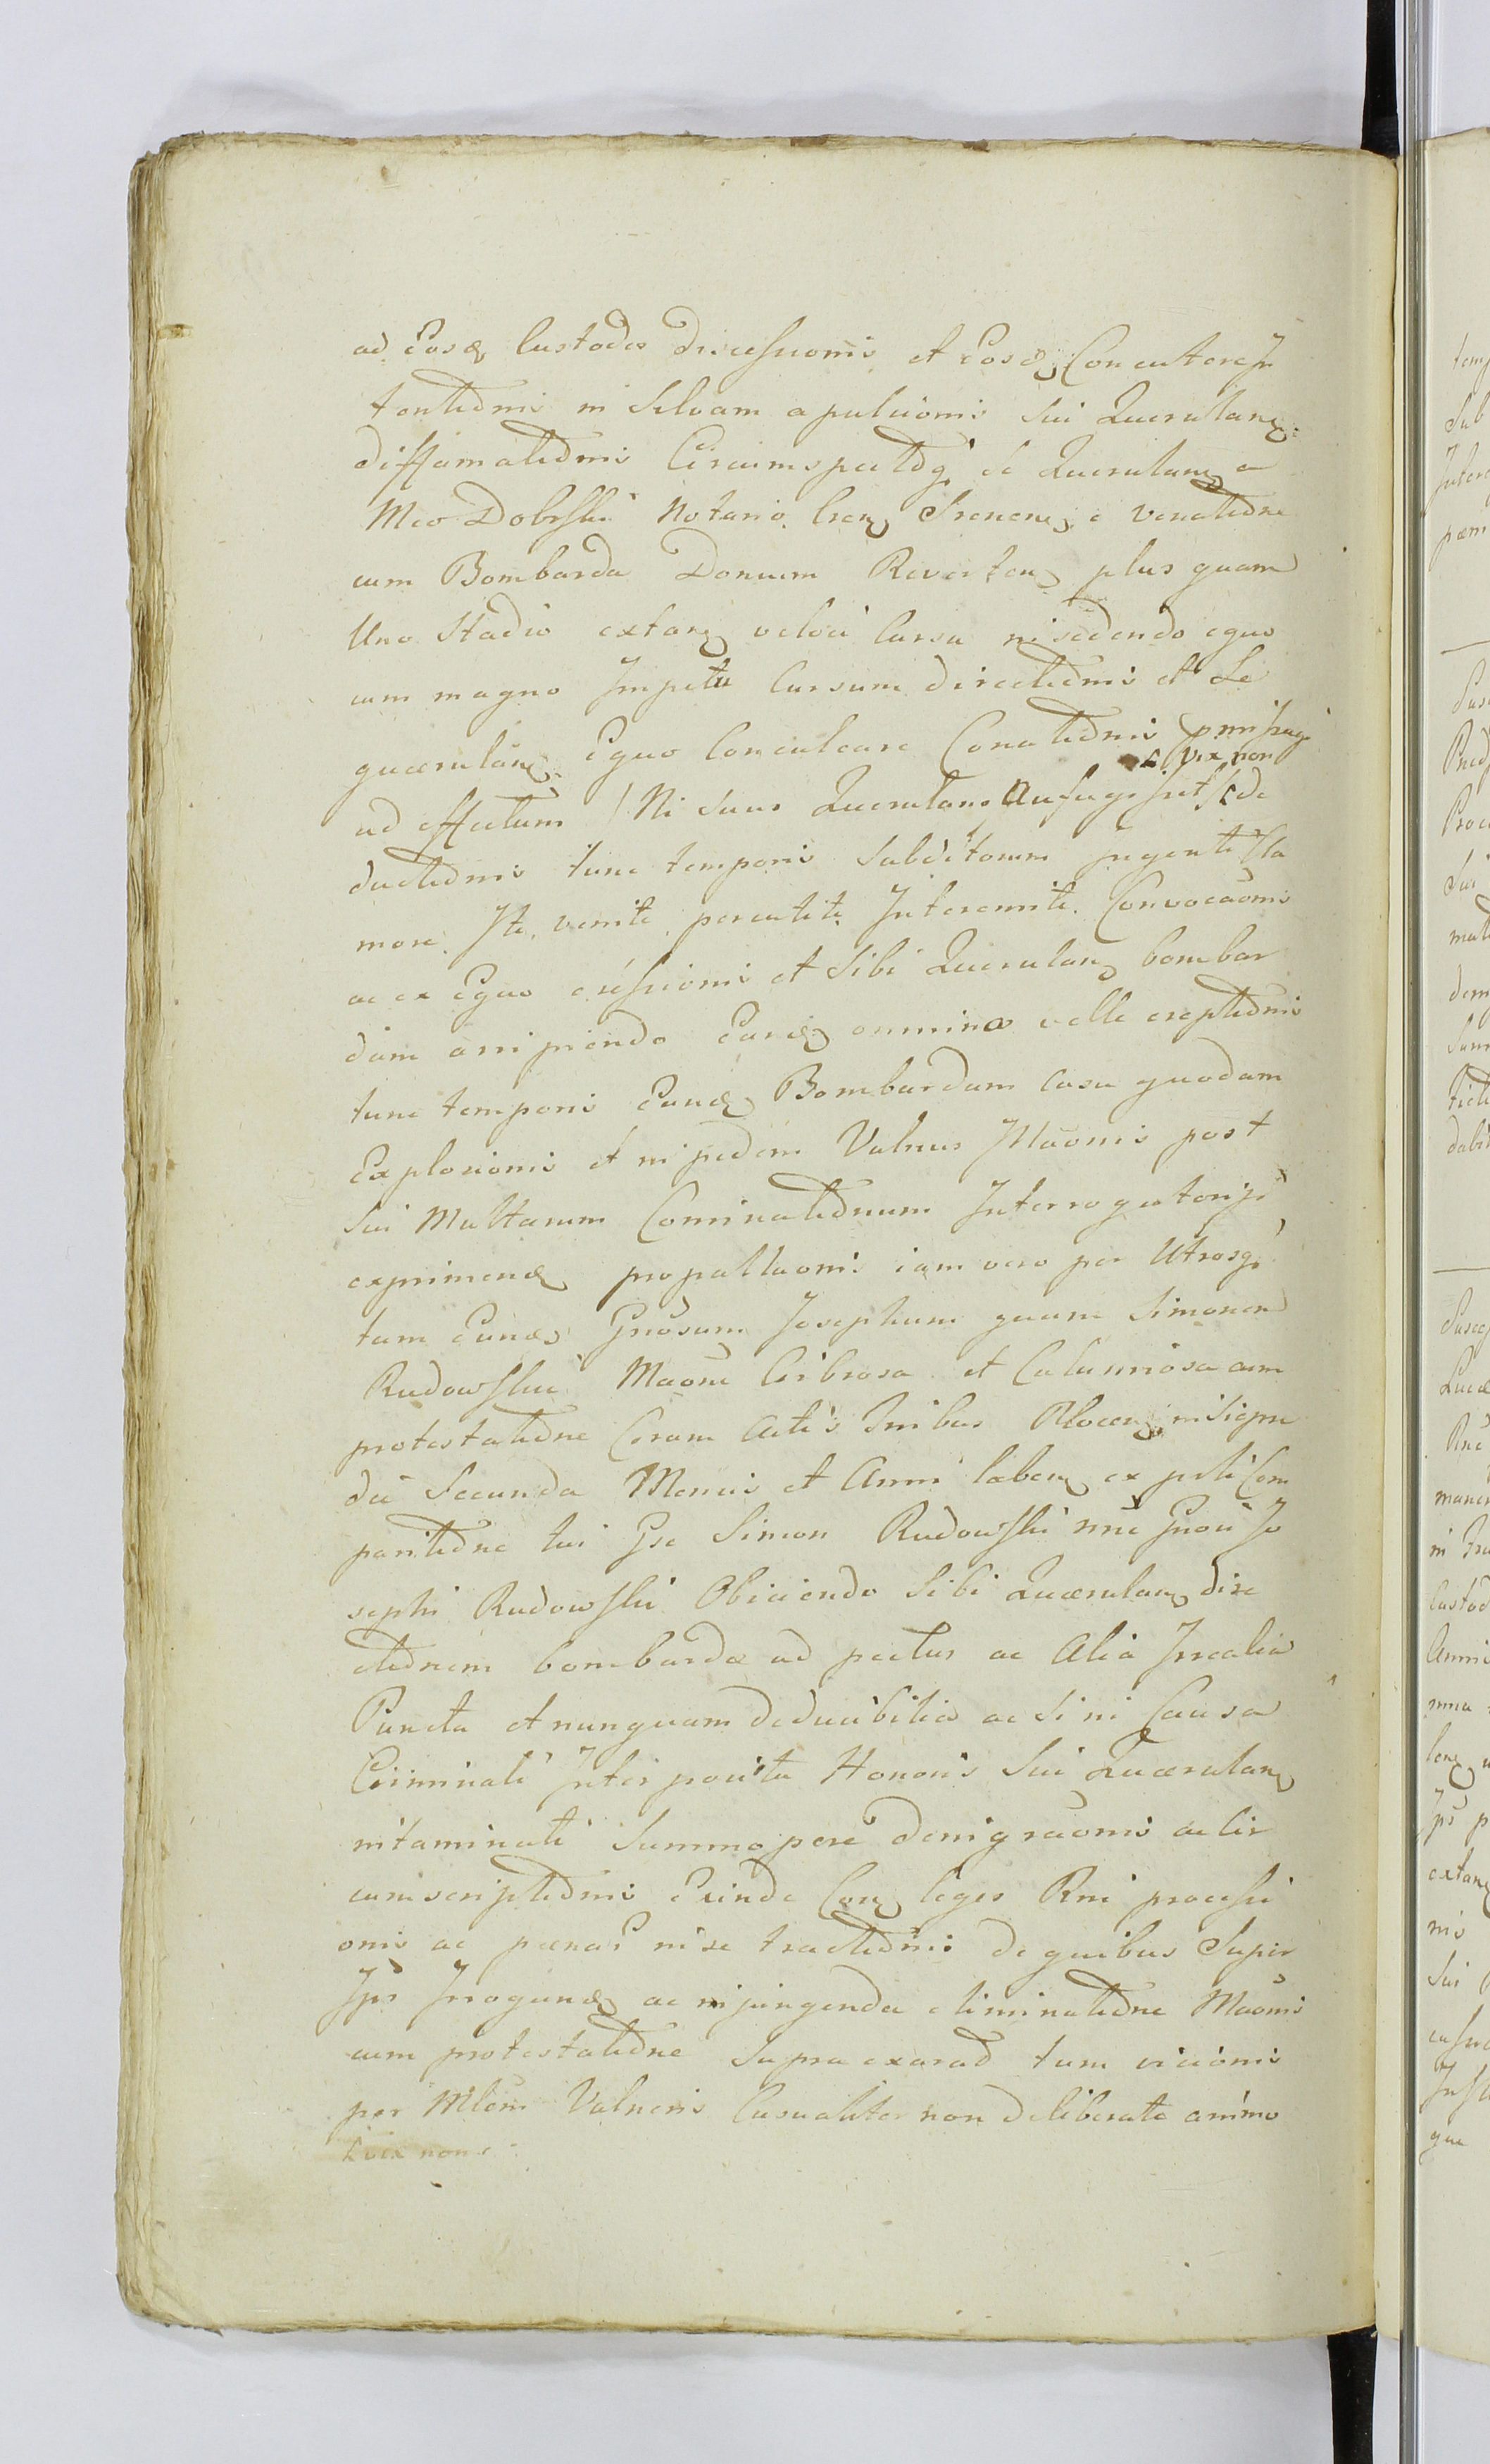 ad Eosd Custodes discessionis et Eosd Concutere In
tentednis in Silvam apulsionis sui Querulan
diffamatednis Circumspectdq. se Querulan a
Mco Dobrski Notario Cren Srenen, e venatedne
cum Bombarda Domum Reverten plus quam
Uno Stadio extan veloci Cursu insedendo equo
cum magno Impetu Cursum directednis et Se
quaerulan Equo Conculcare Conatednis
Vix non
ad effectum / Ni suus Querulans Aufugisset / de
ductednis tunc temporis Subditorum ingenti Cla
more. Ite, venite, percutite, Interemite. Convocaonis
ac ex Equo Messionis et Sibi Querulan bombar
dam arripiendo Eand omnino velle ereptednis
tunc temporis Eand Bombardam casu quodam
Explosionis et in pedem Vulnus Illaonis post
sui Multarum Cominatednum Interrogatorijs
exprimend propallaonis iam vero per Utrosq.
tam Eund Gnosum Josephum quam Simonem
Rudowskie Maom Cribrosa et Calumniosa cum
protestatedne Coram Actis Tribus Plocen insigne
die Secunda Mensis et Anni laben ex pnti Com
paritedne tui Gse Simon Rudowski nne Gnosi Jo
sephi Rudowski Obiciendo Sibi Quaerulan dire
ctednem bombarda ad pectus ac Alia Irrealia
Puncta et nunquam deducibilia ac si in Causa
Criminali Inter posita Honoris Sui Quaerulan
intaminati Summopere denigraonis ac Cir
cumscriptednis Exinde Con leges Rni processi
onis ac paenas in se tractednis de quibus Super
Ips Irrogand ac injungenda eliminatedne Maonis
cum protestatedne supra exarad tum visionis
per Mlem Vulneris Casualiter non deliberate animo
Vix non